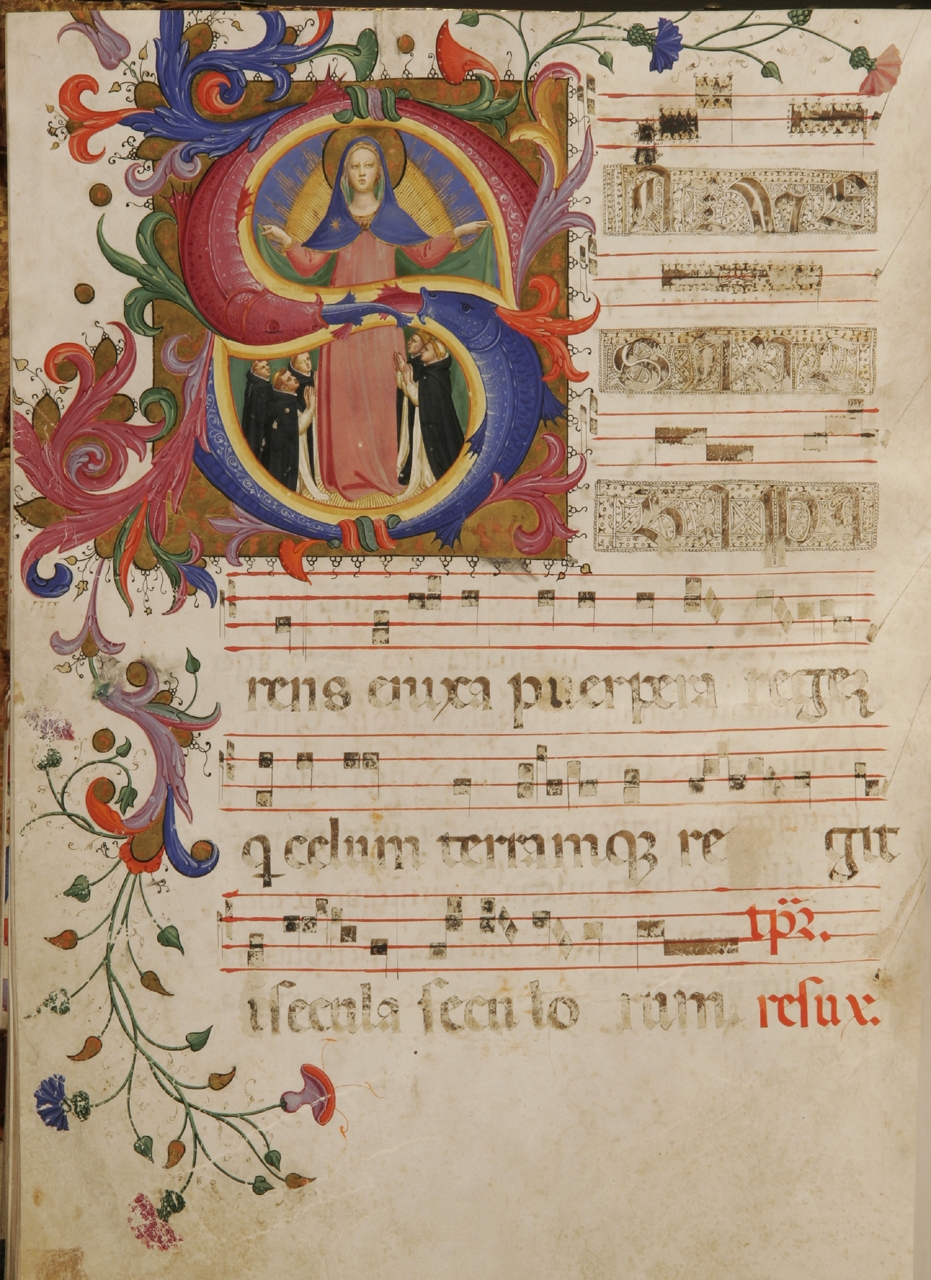 SALVE
SANC
TA PA
rens enixa puerpera regez
q celum terramqz re git
tpr.
i secula seculo rum. resux: